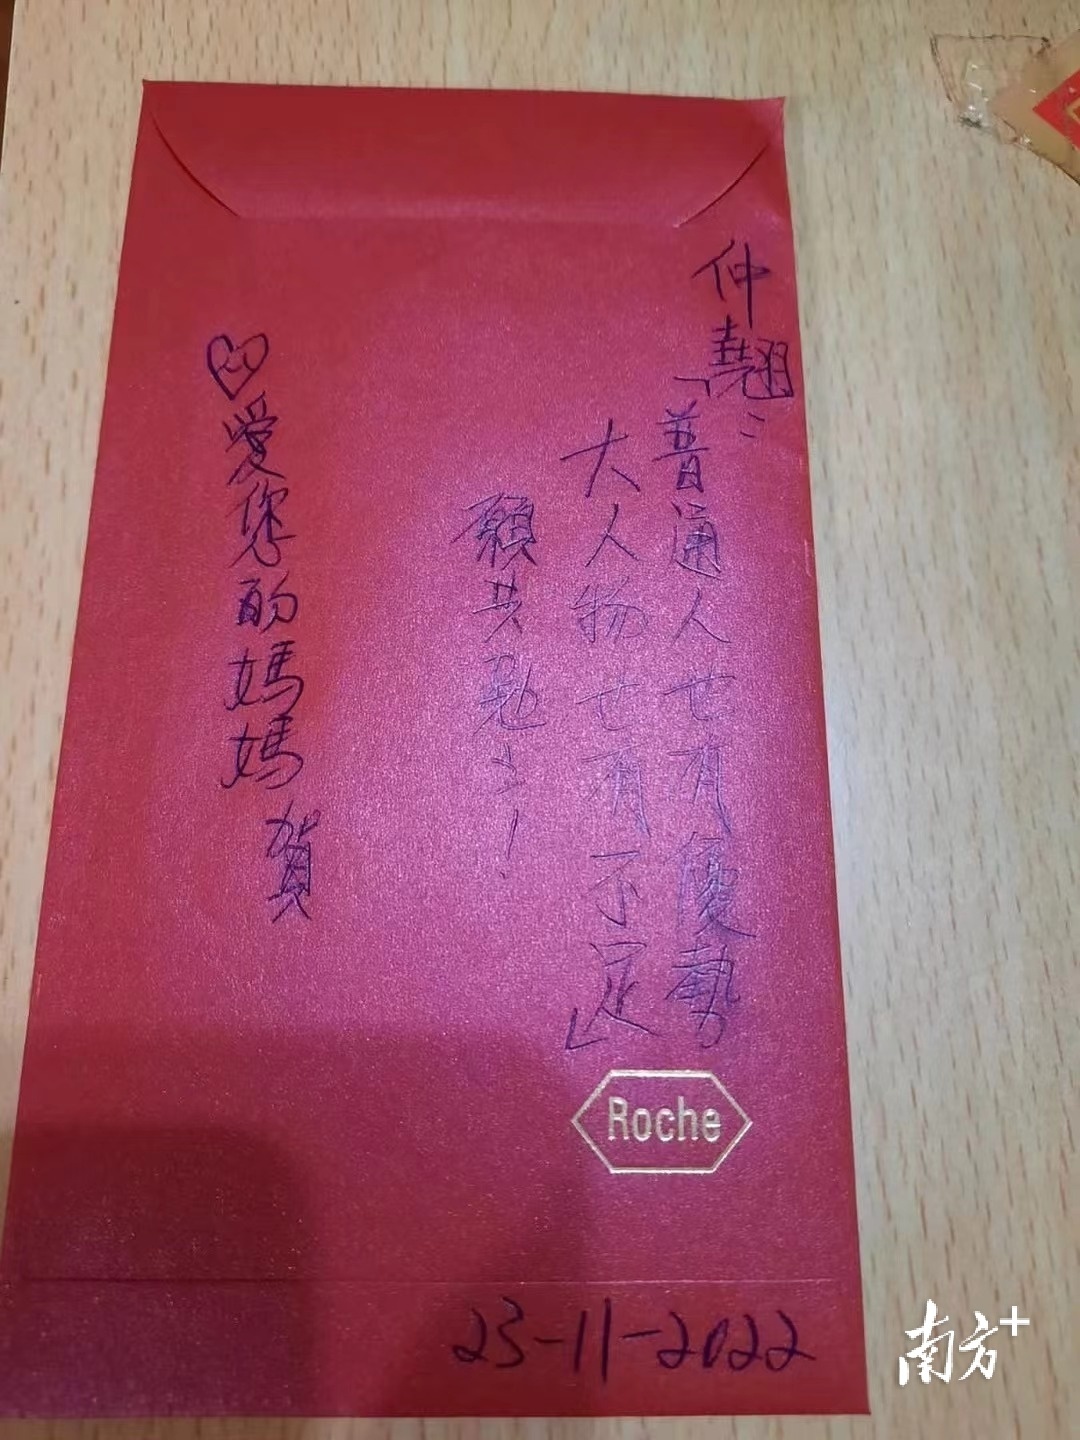 仲翹：
「普通人也有優勢
大人物也有不足」
願共勉之！
愛您的媽媽
賀
Roche
23-11-2022
南方+